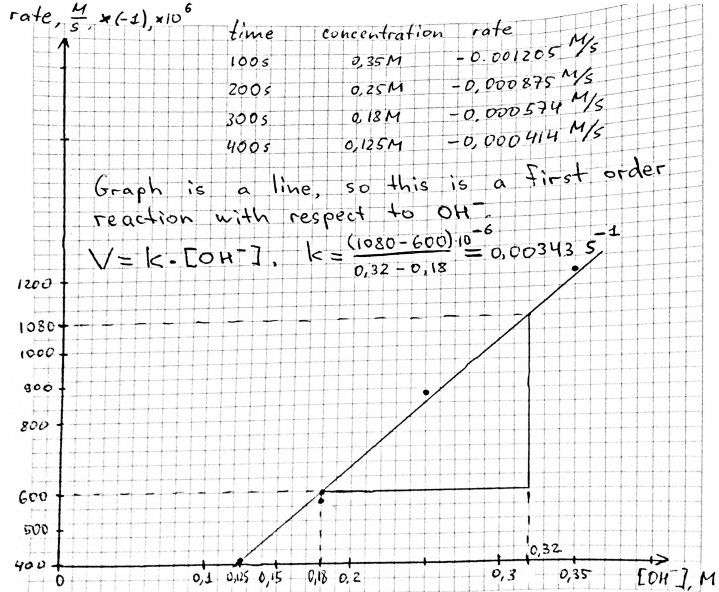 rate, M/s, *(-1), ×10⁶
time concentration rate
100s 0,35M -0.001205 M/s
200s 0,25M -0,000875 M/s
300s 0,18M -0,000574 M/s
400s 0,125M -0,000414 M/s
Graph is a line, so this is a first order
reaction with respect to OH⁻.
V = k · [OH⁻], k = (1080-600)·10⁻⁶ / 0,32-0,18 = 0,00343 s⁻¹
1200
1080
1000
900
800
600
500
400
0 0,1 0,125 0,15 0,18 0,2 0,3 0,32 0,35 [OH⁻], M